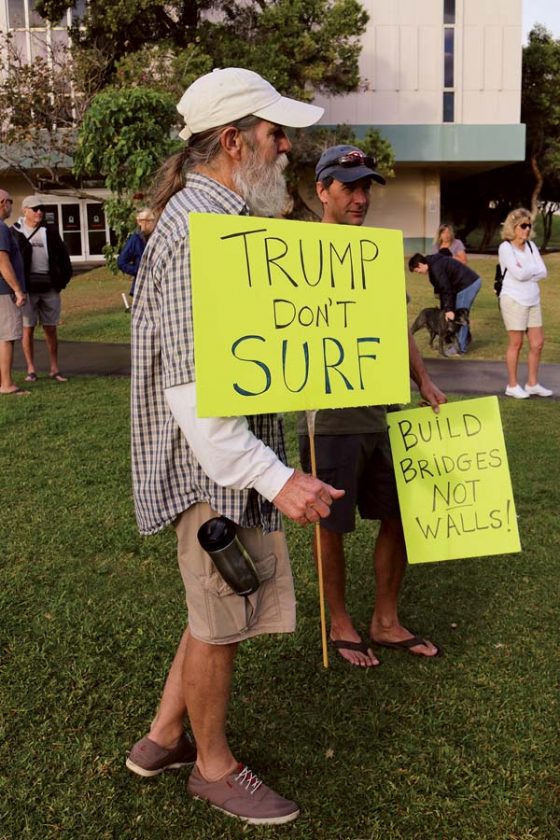 TRUMP
DON'T
SURF
BUILD
BRIDGES
NOT
WALLS!